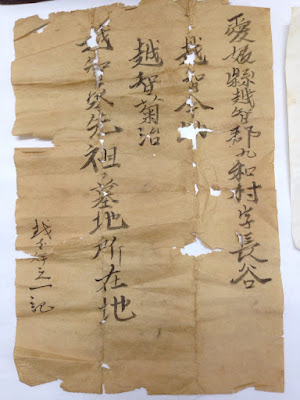 愛媛縣越智郡九和村字長谷
越智
越智菊治
越智家先祖墓地所在地
越智一記